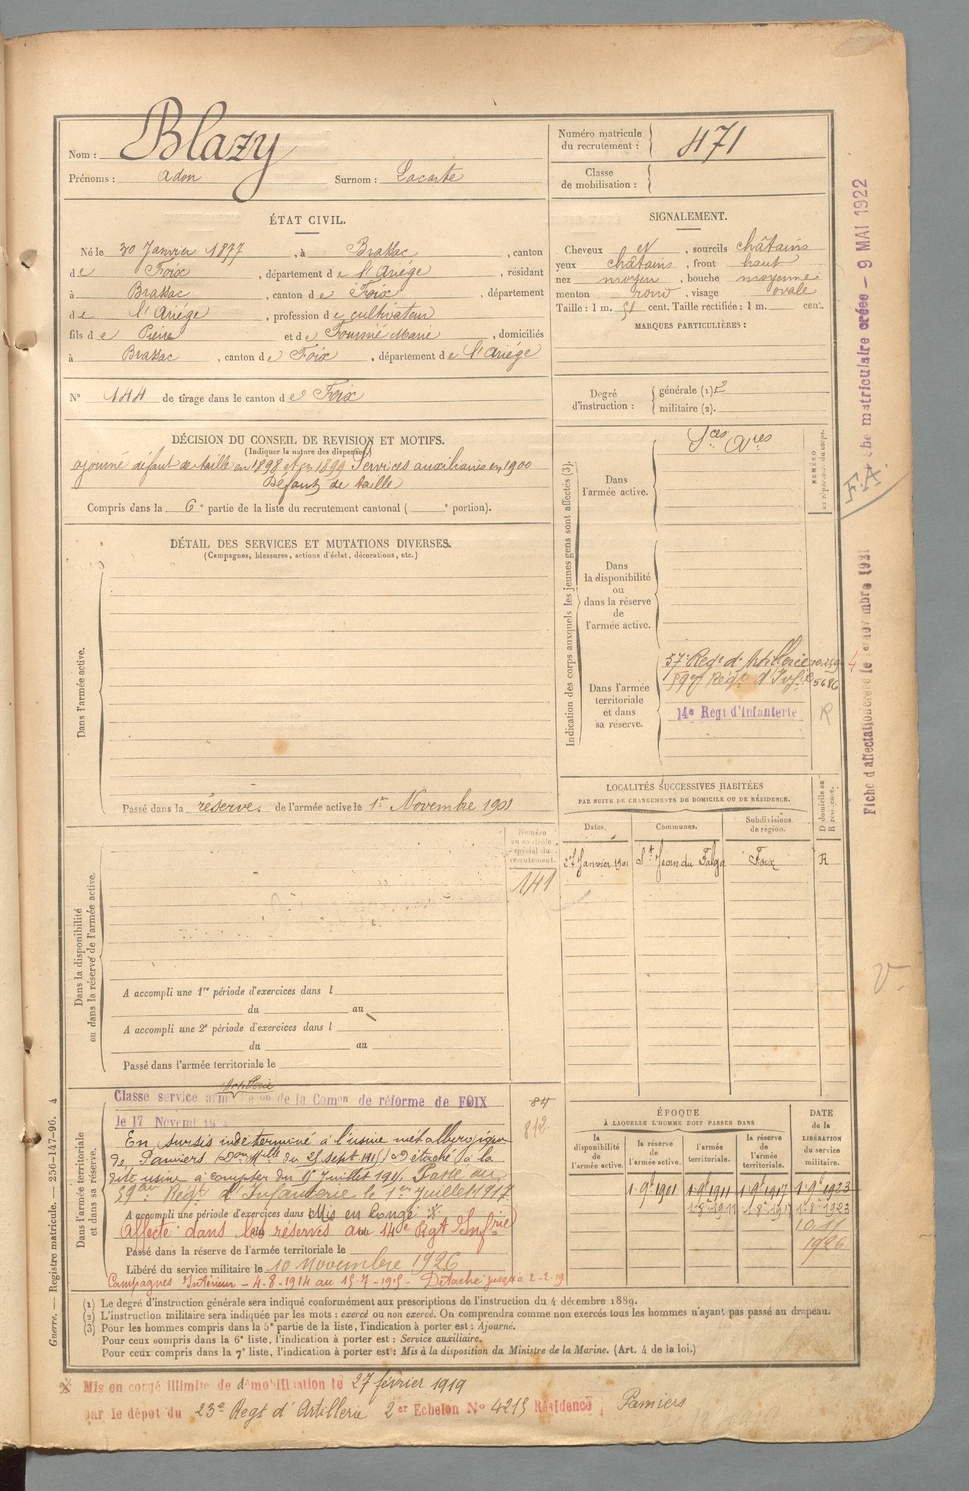 Nom : Blazy
Prénoms : Adon Surnom : Lacoste
Numéro matricule du recrutement : 471
Classe de mobilisation :
ÉTAT CIVIL.
Né le 30 Janvier 1877, à Brassac, canton
de Foix, département de l'Ariège, résidant
à Brassac, canton de Foix, département
de l'Ariège, profession de cultivateur
fils de Pierre et de Fournié Marie, domiciliés
à Brassac, canton de Foix, département de l'Ariège
SIGNALEMENT.
Cheveux et, sourcils châtains
yeux châtains, front haut
nez moyen, bouche moyenne
menton rond, visage ovale
Taille : 1 m. 51 cent. Taille rectifiée : 1 m. cent.
MARQUES PARTICULIÈRES :
N° 144 de tirage dans le canton de Foix
Degré d'instruction : générale (1) 2
militaire (2).
DÉCISION DU CONSEIL DE REVISION ET MOTIFS.
(Indiquer la nature des dispenses)
ajourné défaut de taille en 1898 et en 1899 Services auxiliaires en 1900
Défaut de taille
Compris dans la 6e partie de la liste du recrutement cantonal ( e portion).
DÉTAIL DES SERVICES ET MUTATIONS DIVERSES.
(Campagnes, blessures, actions d'éclat, décorations, etc.)
Dans l'armée active.
Passé dans la réserve de l'armée active le 1er Novembre 1901
Indication des corps auxquels les jeunes gens sont affectés (3).
NUMÉRO au répertoire du corps.
Dans l'armée active.
Sces Ares
Dans la disponibilité ou dans la réserve de l'armée active.
Dans l'armée territoriale et dans sa réserve.
57e Regt d'Artillerie
59e Regt d'Infie
14e Regt d'Infanterie
R
LOCALITÉS SUCCESSIVES HABITÉES
PAR SUITE DE CHANGEMENTS DE DOMICILE OU DE RÉSIDENCE.
D domicile ou R résidence.
Dates. Communes. Subdivisions de région.
27 Janvier 1901 St Jean du Falga Foix R
Dans la disponibilité ou dans la réserve de l'armée active.
Numéro au contrôle spécial du recrutement.
141
A accompli une 1re période d'exercices dans l
du au
A accompli une 2e période d'exercices dans l
du au
Passé dans l'armée territoriale le
Dans l'armée territoriale et dans sa réserve.
Artillerie
Classe service de la Comon de réforme de FOIX
le 17 Novemb
84
812
En sursis indéterminé à l'usine métallurgique
de Pamiers du 25 sept 1915 Détaché à la
dite usine à compter du Juillet 191 Passé au
Regt d'Infanterie le 1er Juillet 1917
A accompli une période d'exercices dans Mis en Congé ※
Affecté dans les réserves au 14e Rgt Infrie
Passé dans la réserve de l'armée territoriale le
Libéré du service militaire le 10 novembre 1926
Campagnes Intérieur - 4-8-1914 au 15-7-1915 - Détaché jusqu'à 2-2-19
ÉPOQUE
À LAQUELLE L'HOMME DOIT PASSER DANS
la disponibilité de l'armée active. la réserve de l'armée active. l'armée territoriale. la réserve de l'armée territoriale.
DATE de la LIBÉRATION du service militaire.
1-9-1901 1-9-1911 1-9-1917 1-9-1923
1-8-1911 1-8-1917 1-8-1923
10-11
1926
(1) Le degré d'instruction générale sera indiqué conformément aux prescriptions de l'instruction du 4 décembre 1889.
(2) L'instruction militaire sera indiquée par les mots : exercé ou non exercé. On comprendra comme non exercés tous les hommes n'ayant pas passé au drapeau.
(3) Pour les hommes compris dans la 5e partie de la liste, l'indication à porter est : Ajourné.
Pour ceux compris dans la 6e liste, l'indication à porter est : Service auxiliaire.
Pour ceux compris dans la 7e liste, l'indication à porter est : Mis à la disposition du Ministre de la Marine. (Art. 4 de la loi.)
※ Mis en congé illimité de démobilisation le 27 février 1919
par le dépot du 23e Regt d'Artillerie 2er Echelon N° 4215 Résidence Pamiers
Guerre. — Registre matricule. — 256-147-96. 4
che matriculaire créée - 9 MAI 1922
F.A.
Fiche d'affectation